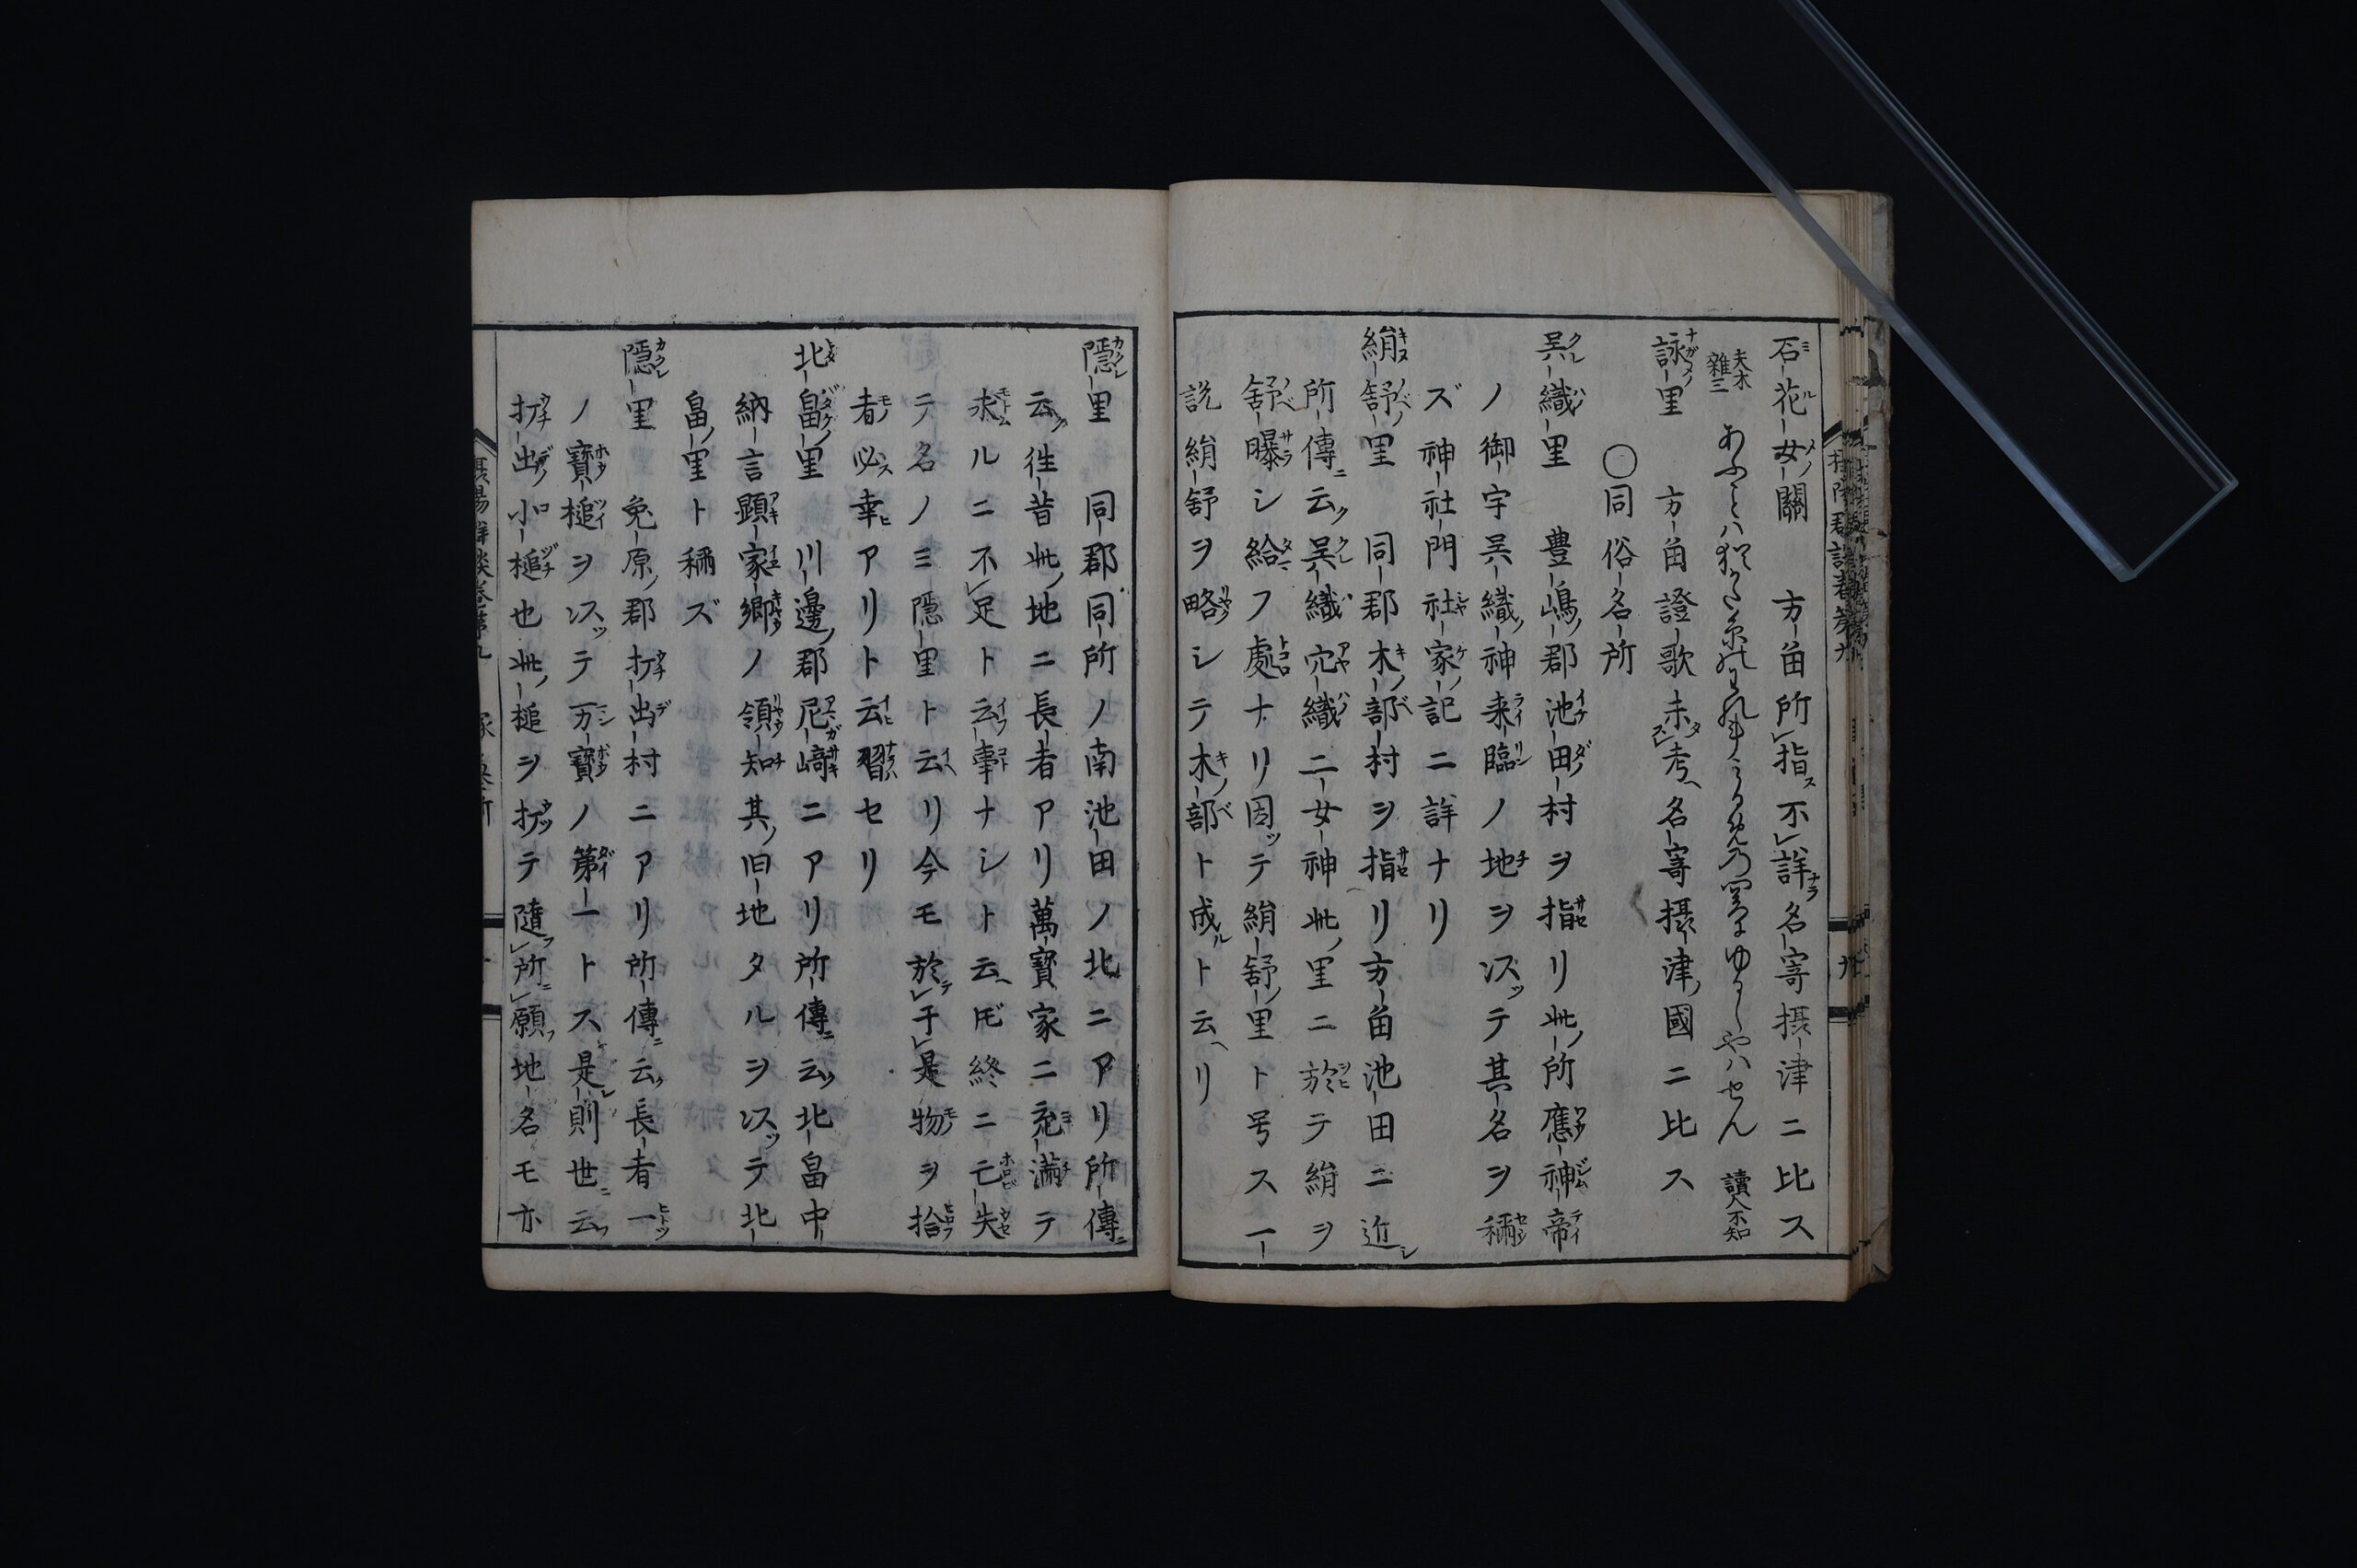 石花女ノ關　方角所レ指不レ詳名寄摂津ニ比ス
夫木
雑三
讀人不知
詠ノ里　方角證歌未レ考名寄摂津ノ國ニ比ス
〇同俗名所
呉織ノ里　豊嶋ノ郡池田ノ村ヲ指リ此ノ所應神帝
ノ御宇呉織ノ神来臨ノ地ヲ以ッテ其名ヲ稱
ズ神社門社家ノ記ニ詳ナリ
絹舒ノ里　同郡木ノ部村ヲ指リ方角池田ニ近シ
所傳ニ云ク呉織穴織二女神此ノ里ニ於テ絹ヲ
舒曝シ給フ處ナリ因ッテ絹舒ノ里ト号ス一
説絹舒ヲ略シテ木ノ部ト成ルト云ヘリ
隱里　同郡同所ノ南池田ノ北ニアリ所傳ニ
云ク往昔此ノ地ニ長者アリ萬寳家ニ充満テ
求ルニ不レ足ト云事ナシト云ヘ𪜈終ニ亡失
テ名ノミ隱里ト云ヘリ今モ於レ于レ是物ヲ拾
者必ス幸アリト云習セリ
北畠ノ里　川邊ノ郡尼ヶ﨑ニアリ所傳ニ云ク北畠中
納言顕家郷ノ領知其ノ旧地タルヲ以ッテ北
畠ノ里ト稱ズ
隱里　兔原ノ郡打出村ニアリ所傳ニ云ク長者一ッ
ノ寳槌ヲ以ッテ万寳ノ第一トス是レ則世ニ云フ
打出ノ小槌也此ノ槌ヲ打ッテ隨レ所レ願フ地名モ亦
摂陽群談巻第九